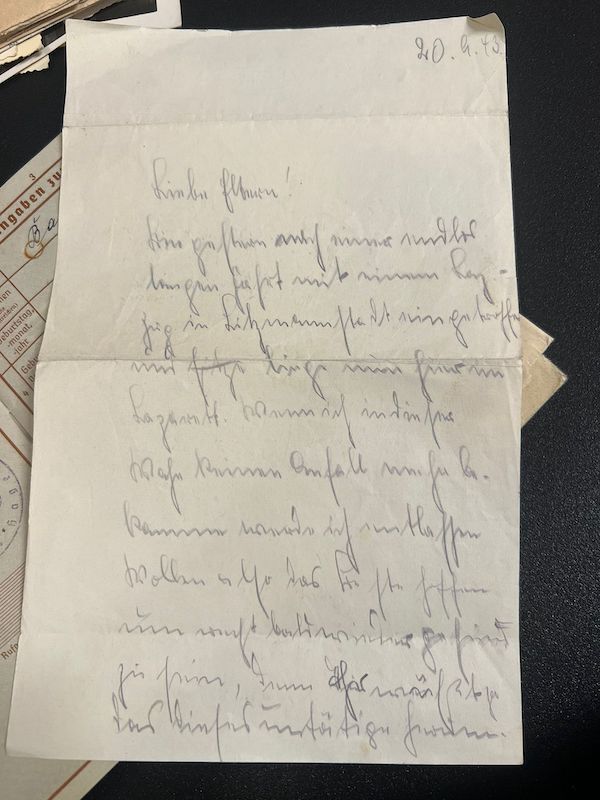 20.9.43.
Liebe Eltern!
Bin gestern nach einer endlos
langen Fahrt mit einem Laz-
zug in Litzmannstadt eingetroffen
und liege nun hier im
Lazarett. Wenn ich in dieser
Woche keinen Anfall mehr be-
komme werde ich entlassen
Wollen also das Beste hoffen
um recht bald wieder gesund
zu sein, denn
das dieses untätige herum-
3
ngaben zu
Ba
Geburtstag,
-monat,
-jahr